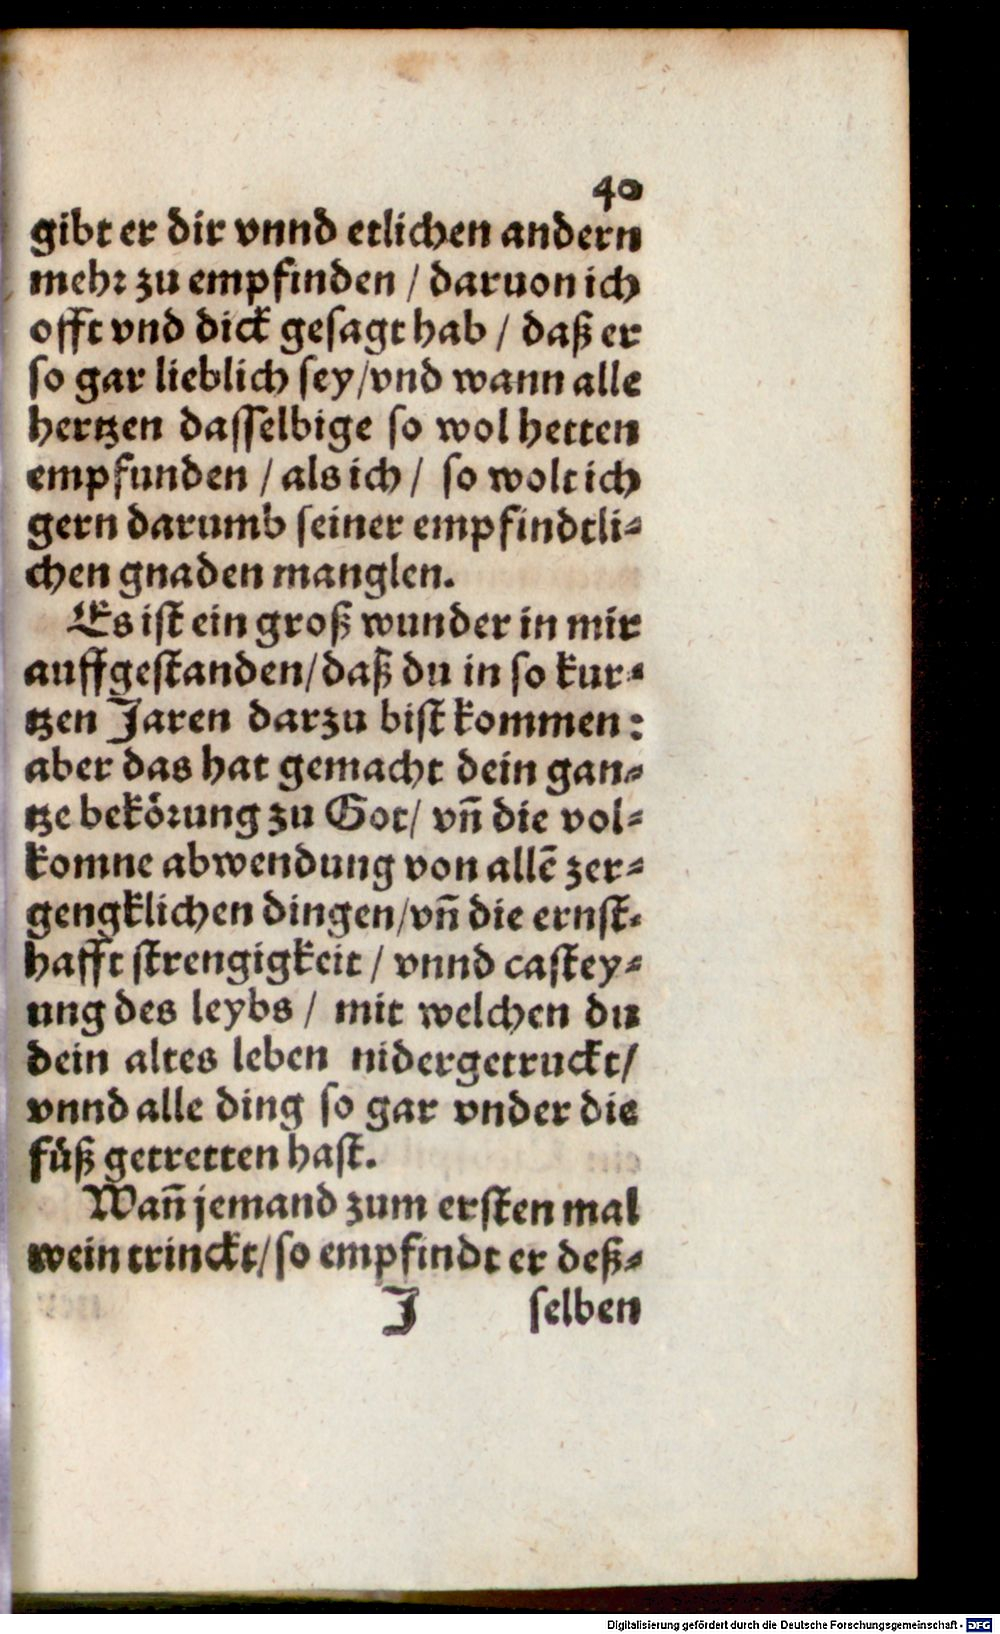 40
gibt er dir vnnd etlichen andern
mehr zu empfinden / daruon ich
offt vnd dick gesagt hab / daß er
so gar lieblich sey/vnd wann alle
hertzen dasselbige so wol hetten
empfunden / als ich / so wolt ich
gern darumb seiner empfindtli⸗
chen gnaden manglen.
Es ist ein groß wunder in mir
auffgestanden/daß du in so kur⸗
tzen Jaren darzu bist kommen:
aber das hat gemacht dein gan⸗
tze bekörung zu Got/ vñ die vol⸗
komne abwendung von allē zer⸗
gengklichen dingen/vñ die ernst⸗
hafft strengigkeit / vnnd castey⸗
ung des leybs / mit welchen du
dein altes leben nidergetruckt/
vnnd alle ding so gar vnder die
füß getretten hast.
Wañ jemand zum ersten mal
wein trinckt/so empfindt er deß⸗
J selben
Digitalisierung gefördert durch die Deutsche Forschungsgemeinschaft - DFG